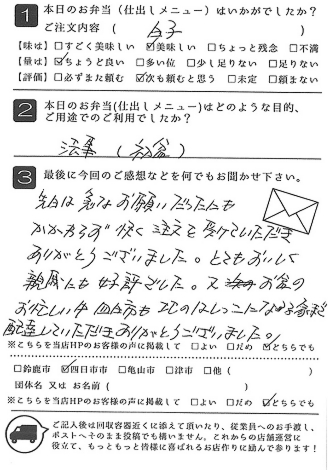 1 本日のお弁当（仕出しメニュー）はいかがでしたか？
ご注文内容（ 白子 ）
【味は】□すごく美味しい ☑美味しい □ちょっと残念 □不満
【量は】☑ちょうど良い □多い位 □少し足りない □足りない
【評価】□必ずまた頼む ☑次も頼むと思う □未定 □頼まない
2 本日のお弁当(仕出しメニュー)はどのような目的、
ご用途でのご利用でしたか？
法事（初盆）
3 最後に今回のご感想などを何でもお聞かせ下さい。
先日は急なお願いだったにも
かかわらず快く注文を受けていただき
ありがとうございました。とてもおいしく
親族にも好評でした。又 お盆の
お忙しい中 四日市も北のはしっこにある家まで
配達していただきありがとうございました。
※こちらを当店HPのお客様の声に掲載して □よい □だめ ☑どちらでも
□鈴鹿市 ☑四日市市 □亀山市 □津市 □他（ ）
団体名 又は お名前（ ）
※こちらを当店HPのお客様の声に掲載して □よい □だめ ☑どちらでも
ご記入後は回収容器近くに添えて頂いたり、従業員へのお手渡し、
ポストへそのまま投函でも構いません。これからの店舗運営に
役立て、もっともっと皆様に喜ばれるお店作りに励んで参ります！